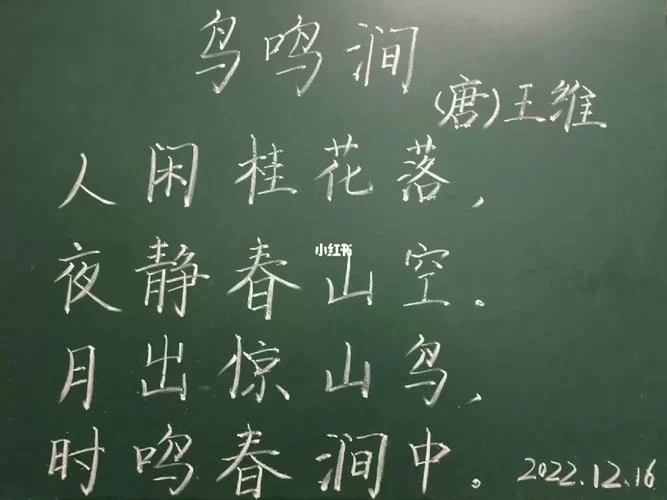 鸟鸣涧
(唐)王维
人闲桂花落,
夜静春山空。
小红书
月出惊山鸟,
时鸣春涧中。
2022.12.16